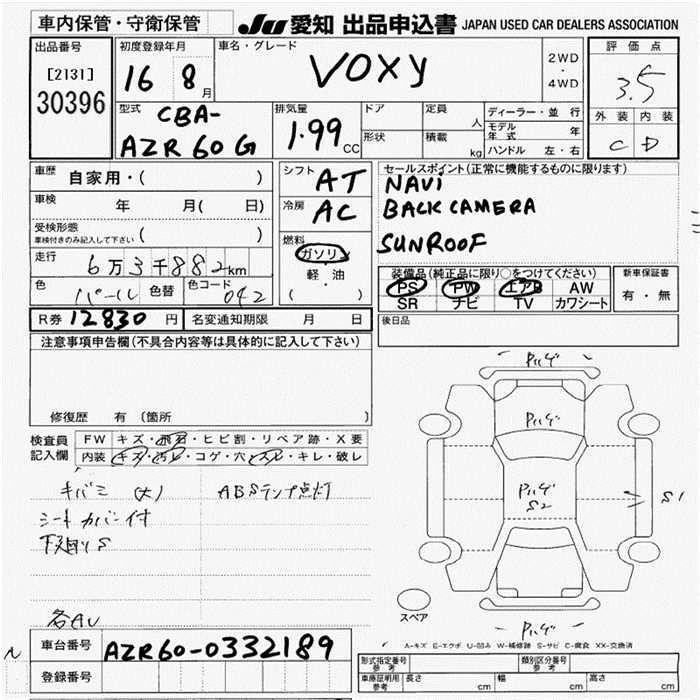 車内保管・守衛保管
JU 愛知 出品申込書 JAPAN USED CAR DEALERS ASSOCIATION
出品番号
[2131]
30396
初度登録年月
16 8月
車名・グレード
VOXY
2WD
・
4WD
評価点
3.5
外装 内装
C D
型式
CBA-
AZR60G
排気量
1.99 CC
ドア
形状
定員 人
積載 kg
ディーラー・並行
モデル年式 年
ハンドル 左・右
車歴 自家用・( )
車検 年 月( 日)
受検形態
車検付きのみ記入して下さい ( )
走行 6万3千882km
色 パール 色替 色コード 042
シフト AT
冷房 AC
燃料
ガソリン
軽・油
( )
セールスポイント(正常に機能するものに限ります)
NAVI
BACK CAMERA
SUNROOF
装備品(純正品に限り○をつけてください)
PS PW エアB AW
SR ナビ TV カワシート
新車保証書
有・無
R券 12830円 名変通知期限 月 日
後日品
注意事項申告欄(不具合内容等は具体的に記入して下さい)
修復歴 有(箇所 )
検査員記入欄
FW キズ・飛石・ヒビ割・リペア跡・X要
内装 キズ・汚レ・コゲ・穴・スレ・キレ・破レ
キバミ (大) ABSランプ点灯
シートカバー付
下廻りS
各AU
Pハゲ
Pハゲ
Pハゲ
S2
S1
Pハゲ
スペア
A-キズ E-エクボ U-凹み W-補修跡 S-サビ C-腐食 XX-交換済
車台番号 AZR60-0332189
登録番号
形式指定番号
参考
類別区分番号
参考
車庫証明用
参考
長さ cm 幅 cm 高さ cm